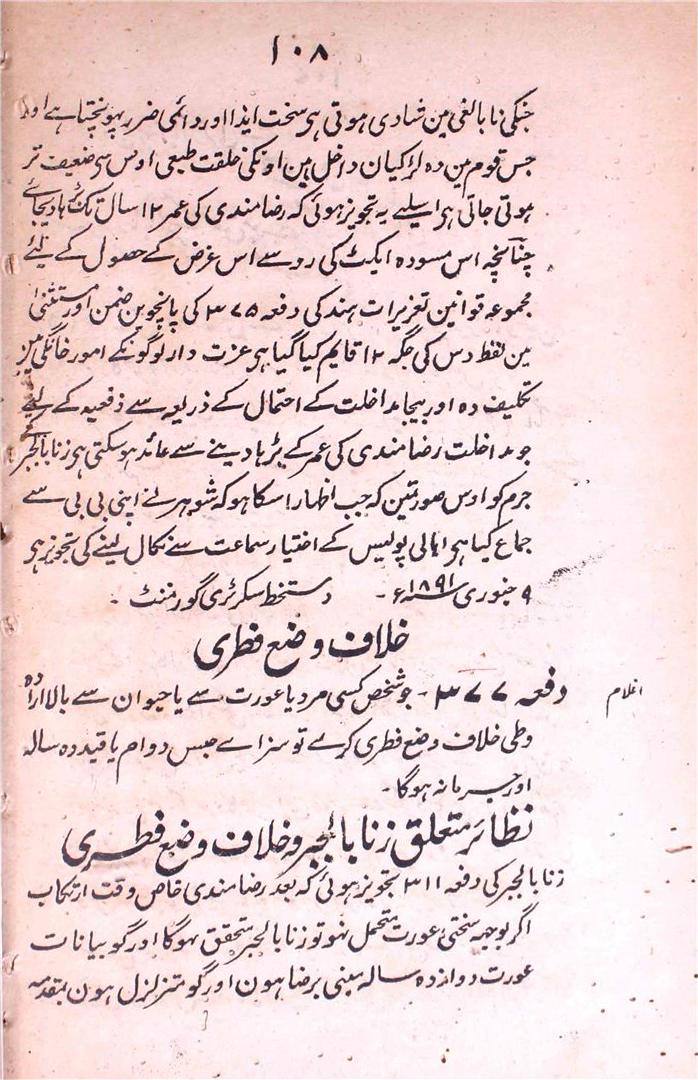 ۱۰۸
جنکی نابالغی مین شادی ہوتی ہی سخت ایذا اور دائمی ضرر پہونچتا ہے اور
جس قوم مین وہ لڑکیان داخل ہین اونکی خلقت طبعی اوس سی ضعیف تر
ہوتی جاتی ہی اسلیے یہ تجویز ہوئی کہ رضامندی کی عمر ۱۲ سال تک بڑہا دیجائے
چنانچہ اس مسودہ ایکٹ کی رو سے اس غرض کے حصول کے لیئے
مجموعہ قوانین تعزیرات ہند کی دفعہ ۳۷۵ کی پانچوین ضمن اور مستثنیٰ
مین لفظ دس کی جگہ ۱۲ قایم کیا گیا ہی عزت دار لوگونکے امور خانگی مین
تکلیف دہ اور بیجا مداخلت کے احتمال کے ذریعہ سے دفعیہ کے لیئے
جو مداخلت رضامندی کی عمر کے بڑہا دینے سے عائد ہوسکتی ہی زنا بالجبر کے
جرم کو اوس صورتمین کہ جب اظہار اسکا ہو کہ شوہر نے اپنی بی بی سے
جماع کیا ہی اہالی پولیس کے اختیار سماعت سے نکال لینے کی تجویز ہی
۹ جنوری سنہ ۱۸۹۱ء۔ دستخط سکرٹری گورمنٹ ۔
خلاف وضع فطری
اغلام
دفعہ ۳۷۷ ۔ جو شخص کسی مرد یا عورت سے یا حیوان سے بالارادہ
وطی خلاف وضع فطری کرے تو سزاے حبس دوام یا قید دہ سالہ
اور جرمانہ ہوگا۔
نظائر متعلق زنا بالجبر و خلاف وضع فطری
زنا بالجبر کی دفعہ ۳۱۱ تجویز ہوئی کہ بعد رضامندی خاص وقت ارتکاب
اگر بوجہہ سختی عورت متحمل نہو تو زنا بالجبر متحقق ہوگا اور گو بیانات
عورت دوازدہ سالہ مبنی برضا ہون اور گو متزلزل ہون بمقدمہ